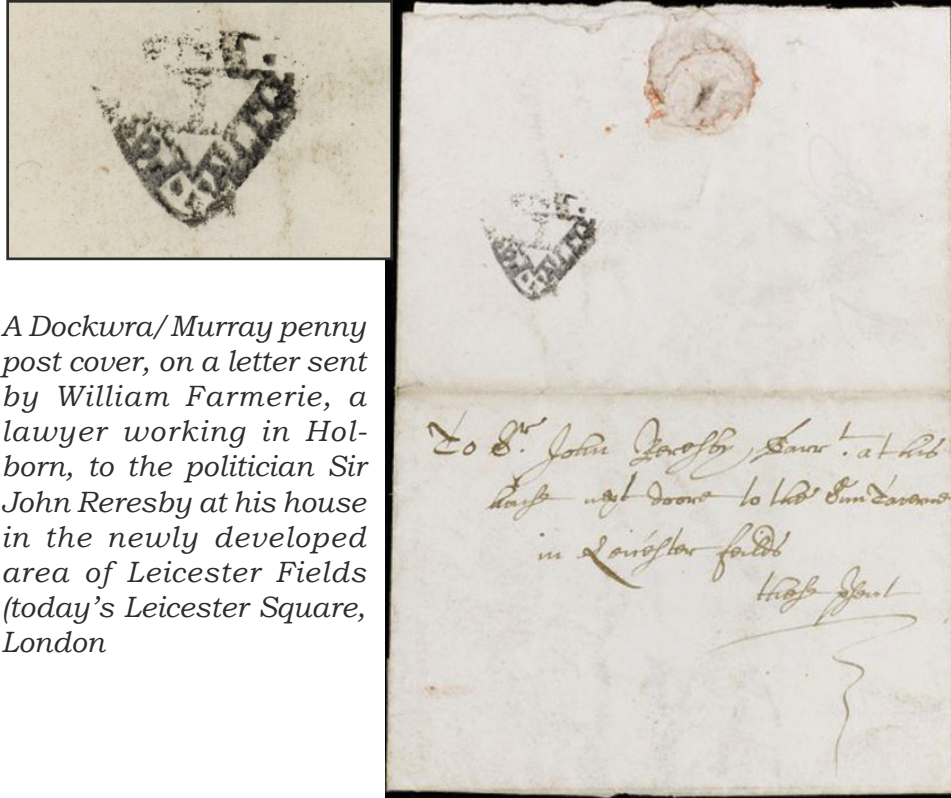 A Dockwra/Murray penny
post cover, on a letter sent
by William Farmerie, a
lawyer working in Hol-
born, to the politician Sir
John Reresby at his house
in the newly developed
area of Leicester Fields
(today's Leicester Square,
London
To Sr. John Reresby, Barrt. at his
house next doore to the Sun Taverne
in Leicester feilds
these psent